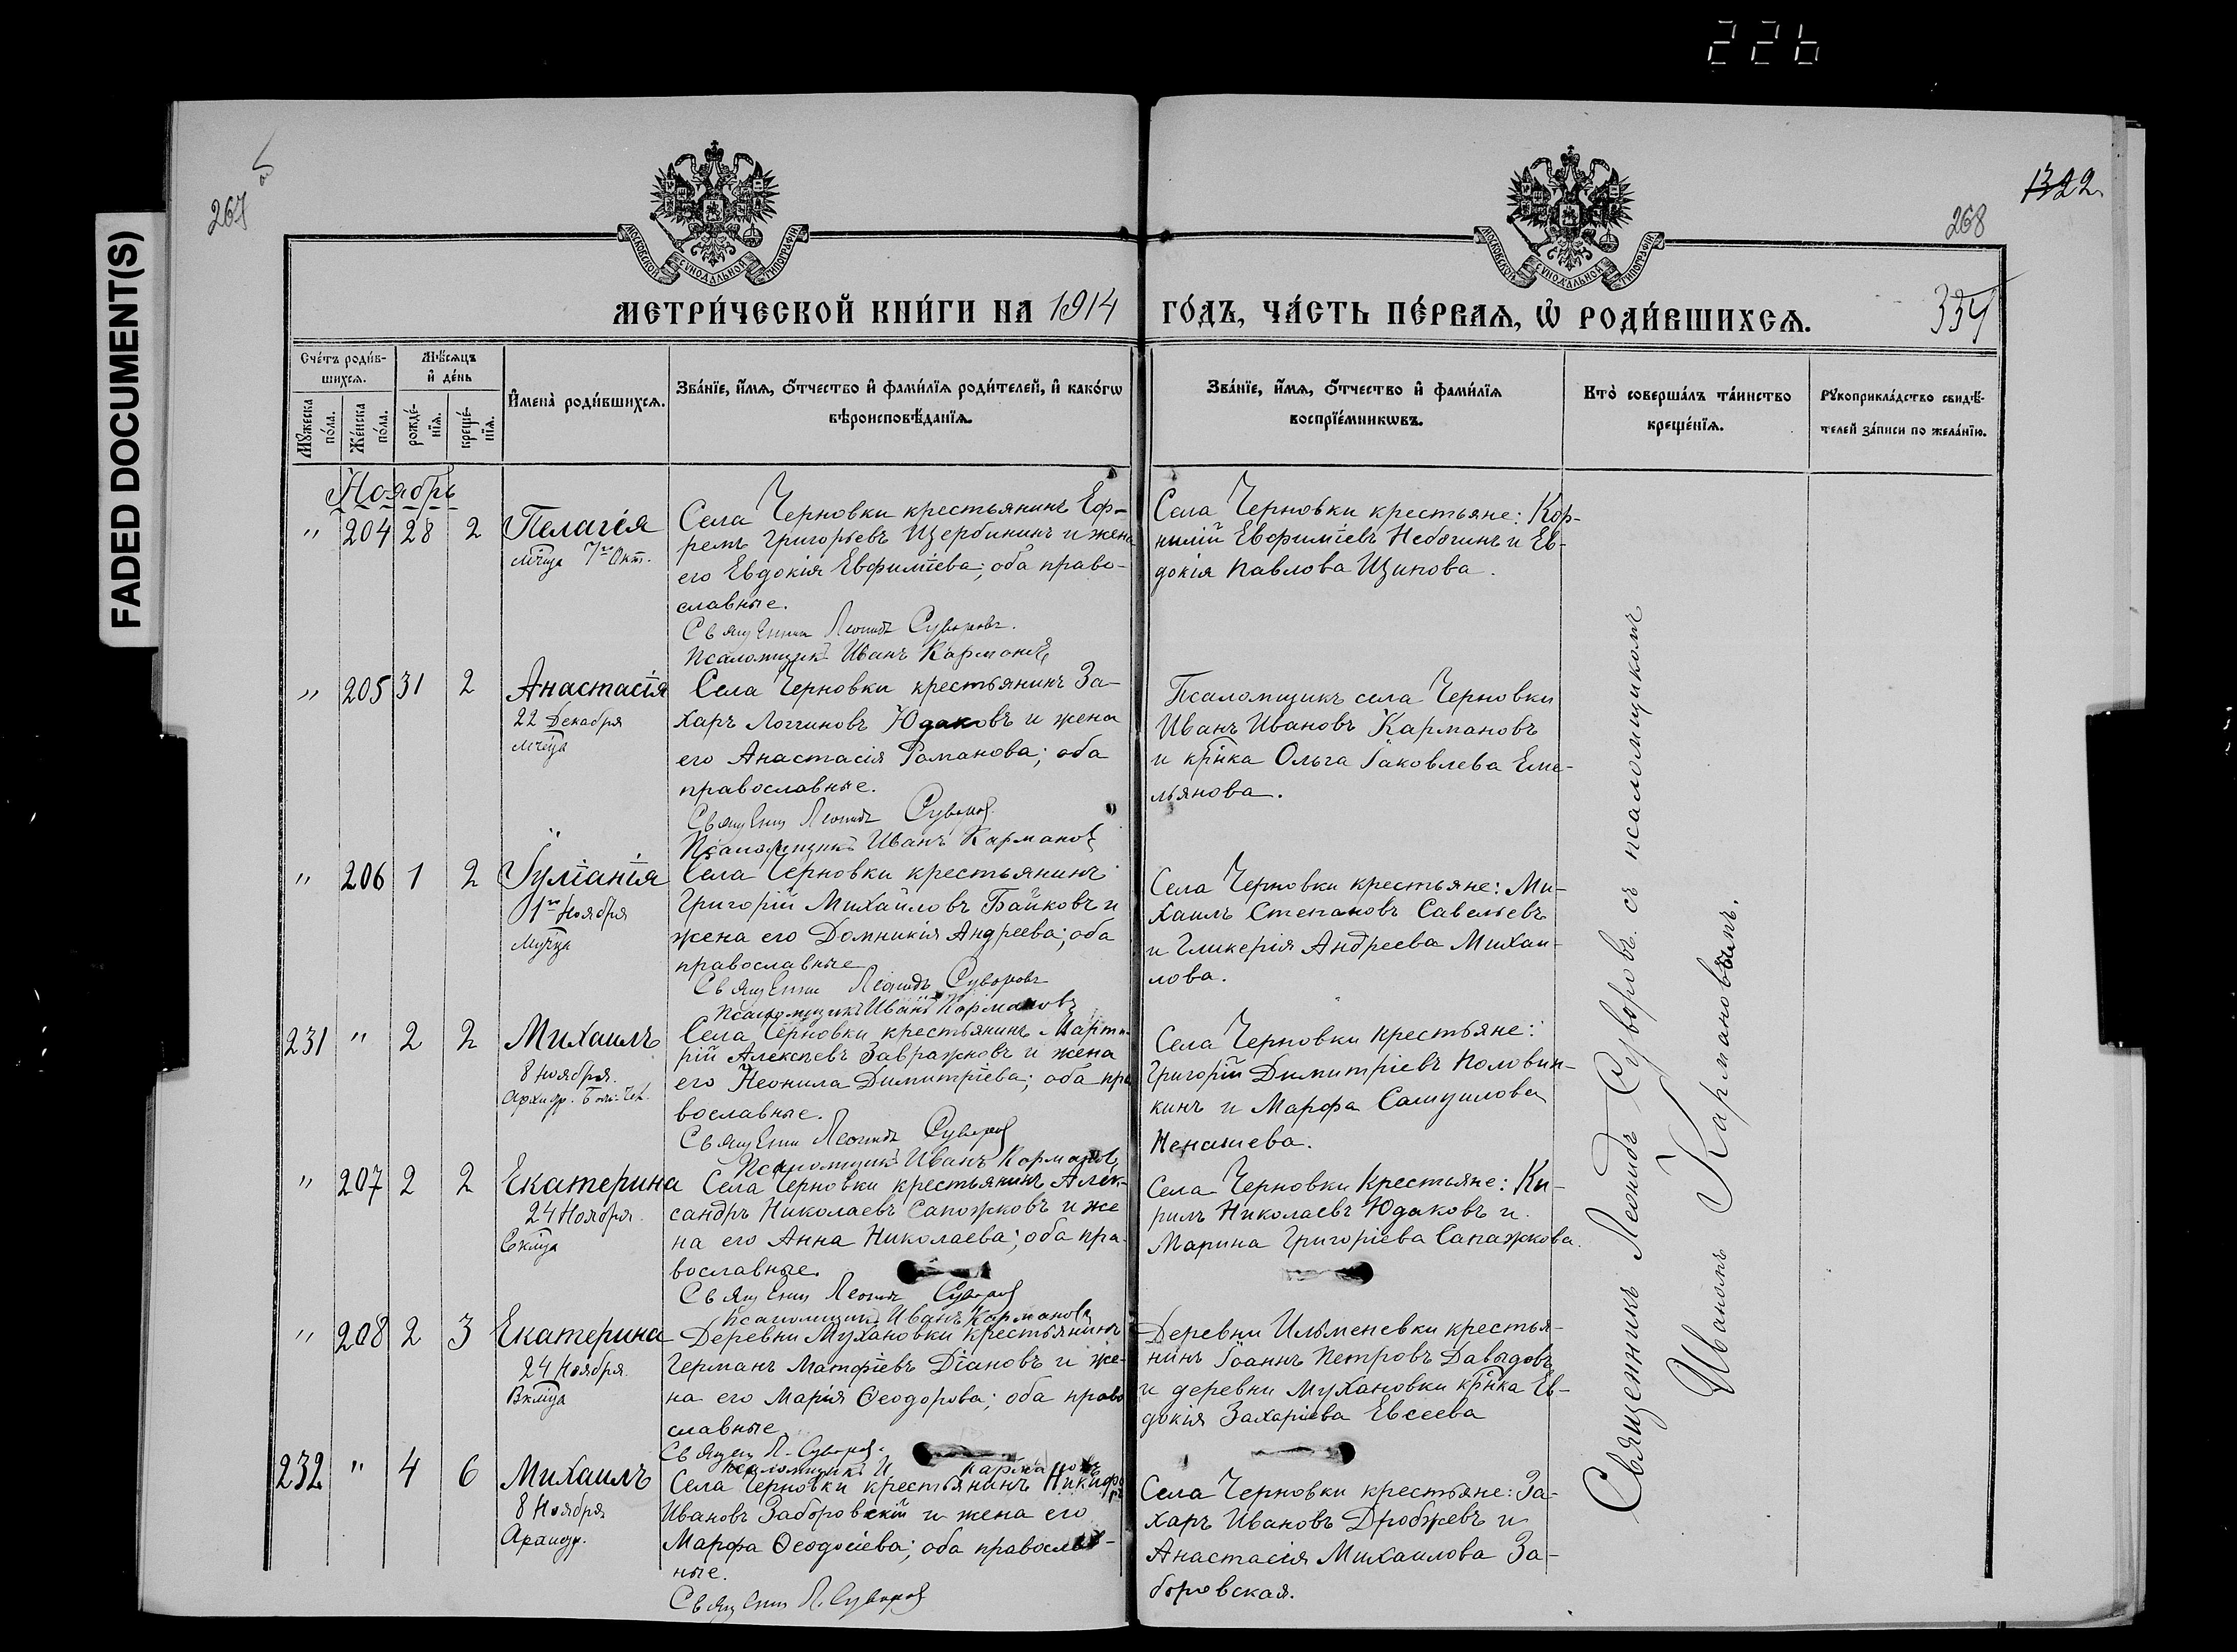 226
FADED DOCUMENT(S)
267 об
1322
268
334
МОСКОВСКОЙ СѴНОДАЛЬНОЙ ТИПОГРАФІИ
МОСКОВСКОЙ СѴНОДАЛЬНОЙ ТИПОГРАФІИ
МЕТРИ́ЧЕСКОЙ КНИ́ГИ НА 1914 ГО́ДЪ, ЧА́СТЬ ПЕ́РВАѦ, Ѡ҆ РОДИ́ВШИХСѦ.
Сче́тъ роди́в-
шихсѧ.
Мѣ́сѧцъ
и҆ де́нь
Мꙋ́жеска
по́ла.
Же́нска
по́ла.
рожде́-
нїѧ.
креще́-
нїѧ.
И҆мена̀ роди́вшихсѧ.
Зва́нїе, и҆́мѧ, ѻ҆́тчество и҆ фами́лїѧ роди́телей, и҆ како́гѡ
вѣроисповѣ́данїѧ.
Зва́нїе, и҆́мѧ, ѻ҆́тчество и҆ фами́лїѧ
воспрїе́мникѡвъ.
Кто̀ соверша́лъ та́инство
креще́нїѧ.
Рꙋкоприкла́дство свидѣ́-
телей за́писи по жела́нїю.
Ноябрь
" 204 28 2 Пелагія
мчца 7го Окт.
Села Черновки крестьянинъ Еф-
ремъ Григорьевъ Щербининъ и жена
его Евдокія Евфиміева; оба право-
славные.
Священник Леонидъ Суворовъ.
Псаломщикъ Иванъ Кармановъ
Села Черновки крестьяне: Кор-
нилій Евфиміевъ Небогинъ и Ев-
докія Павлова Щипова.
" 205 31 2 Анастасія
22 Декабря
мчца
Села Черновки крестьянинъ За-
харъ Логгиновъ Юдаковъ и жена
его Анастасія Романова; оба
православные.
Священник Леонидъ Суворов
Псаломщикъ Иванъ Карманов
Псаломщикъ села Черновки
Иванъ Ивановъ Кармановъ
и крнка Ольга Іаковлева Еме-
льянова.
" 206 1 2 Іуліанія
1го Ноября
Мучца
Села Черновки крестьянинъ
Григорій Михайловъ Байковъ и
жена его Домникія Андреева; оба
православные
Священник Леонидъ Суворовъ
Псаломщикъ Иванъ Кармановъ
Села Черновки крестьяне: Ми-
хаилъ Степановъ Савельевъ
и Гликерія Андреева Михаи-
лова.
231 " 2 2 Михаилъ
8 Ноября.
Села Черновки крестьянинъ Марти-
рій Алексѣевъ Завражновъ и жена
его Неонила Димитріева; оба пра
вославные.
Священник Леонидъ Суворов
Псаломщикъ Иванъ Карманов
Села Черновки крестьяне:
Григорій Димитріевъ Половин-
кинъ и Марфа Самуилова
Ненашева.
" 207 2 2 Екатерина
24 Ноября.
Вкмца
Села Черновки крестьянинъ Алек-
сандръ Николаевъ Сапожковъ и же
на его Анна Николаева; оба пра-
вославные.
Священник Леонидъ Суворов
Псаломщикъ Иванъ Карманов
Села Черновки крестьяне: Ки-
рилъ Николаевъ Юдаковъ и
Марина Григоріева Сапажкова.
" 208 2 3 Екатерина
24 Ноября.
Вкмца
Деревни Мухановки крестьянинъ
Германъ Матфіевъ Діановъ и же-
на его Марія Ѳеодорова; оба право
славные.
Священ Л. Суворов.
псаломщикъ И Кармановъ
Деревни Ильменевки крестья-
нинъ Іоаннъ Петровъ Давыдовъ
и деревни Мухановки крнка Ев-
докія Захаріева Евсеева
232 " 4 6 Михаилъ
8 Ноября
Архистр.
Села Черновки крестьянинъ Никифо
ръ
Ивановъ Заборовскій и жена его
Марфа Ѳеодосіева; оба православ-
ные.
Священник Л. Суворов
Села Черновки крестьяне: За-
харъ Ивановъ Дробжевъ и
Анастасія Михаилова За-
боровская.
Священникъ Леонидъ Суворовъ съ псаломщикомъ
Иваномъ Кармановымъ.